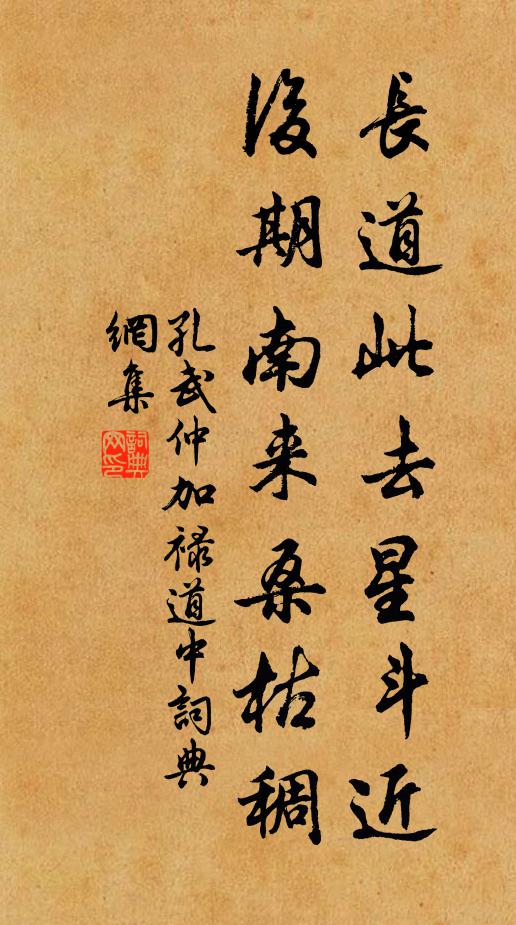 長道此去星斗近
後期南来桑枯稠
孔武仲加禄道中詞典
網集
詞典
网印